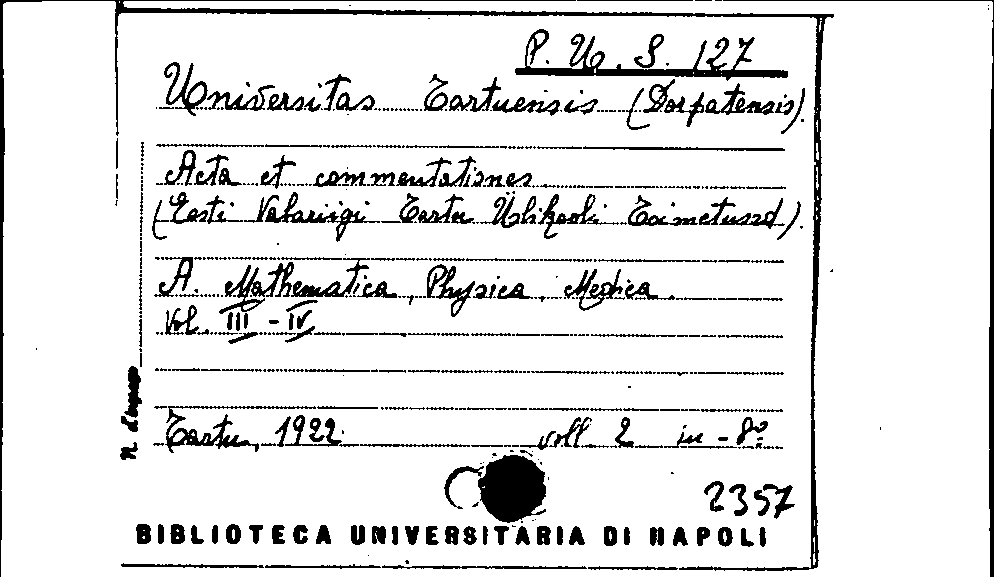 P. U. S. 127
Universitas Tartuensis (Dorpatensis).
Acta et commentationes
(Eesti Vabariigi Tartu Ülikooli Toimetused).
A. Mathematica, Physica, Medica.
Vol. III - IV
Tartu, 1922. voll. 2 in-8º
N. d'ingresso
2357
BIBLIOTECA UNIVERSITARIA DI NAPOLI